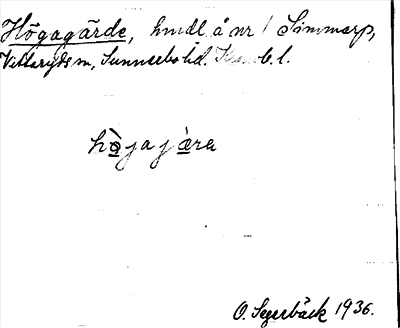 Högagärde, hmdl å nr 1 Simmarp,
Villaryds sn, Sunnerbo hd. Kron. l.
hò̱jajæ̱̀ra
O. Segerbäck 1936.